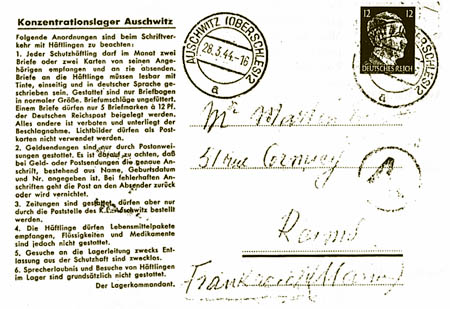 Konzentrationslager Auschwitz
Folgende Anordnungen sind beim Schriftver-
kehr mit Häftlingen zu beachten:
1. Jeder Schutzhäftling darf im Monat zwei
Briefe oder zwei Karten von seinen Ange-
hörigen empfangen und an sie absenden.
Briefe an die Häftlinge müssen lesbar mit
Tinte, einseitig und in deutscher Sprache ge-
schrieben sein. Gestattet sind nur Briefbogen
in normaler Größe. Briefumschläge ungefüttert.
Einem Briefe dürfen nur 5 Briefmarken à 12 Pf.
der Deutschen Reichspost beigelegt werden.
Alles andere ist verboten und unterliegt der
Beschlagnahme. Lichtbilder dürfen als Post-
karten nicht verwendet werden.
2. Geldsendungen sind nur durch Postanwei-
sungen gestattet. Es ist darauf zu achten, daß
bei Geld- oder Postsendungen die genaue An-
schrift, bestehend aus Name, Geburtsdatum
und Nr. angegeben ist. Bei fehlerhaften An-
schriften geht die Post an den Absender zurück
oder wird vernichtet.
3. Zeitungen sind gestattet, dürfen aber nur
durch die Poststelle des K.L. Auschwitz bestellt
werden.
4. Die Häftlinge dürfen Lebensmittelpakete
empfangen, Flüssigkeiten und Medikamente
sind jedoch nicht gestattet.
5. Gesuche an die Lagerleitung zwecks Ent-
lassung aus der Schutzhaft sind zwecklos.
6. Sprecherlaubnis und Besuche von Häftlingen
im Lager sind grundsätzlich nicht gestattet.
Der Lagerkommandant.
AUSCHWITZ (OBERSCHLES) 2
28.3.44.-16
a
12 12
DEUTSCHES REICH
(OBERSCHLES) 2
a
Mr Martin
51 rue
Reims
Frankreich (Marne)